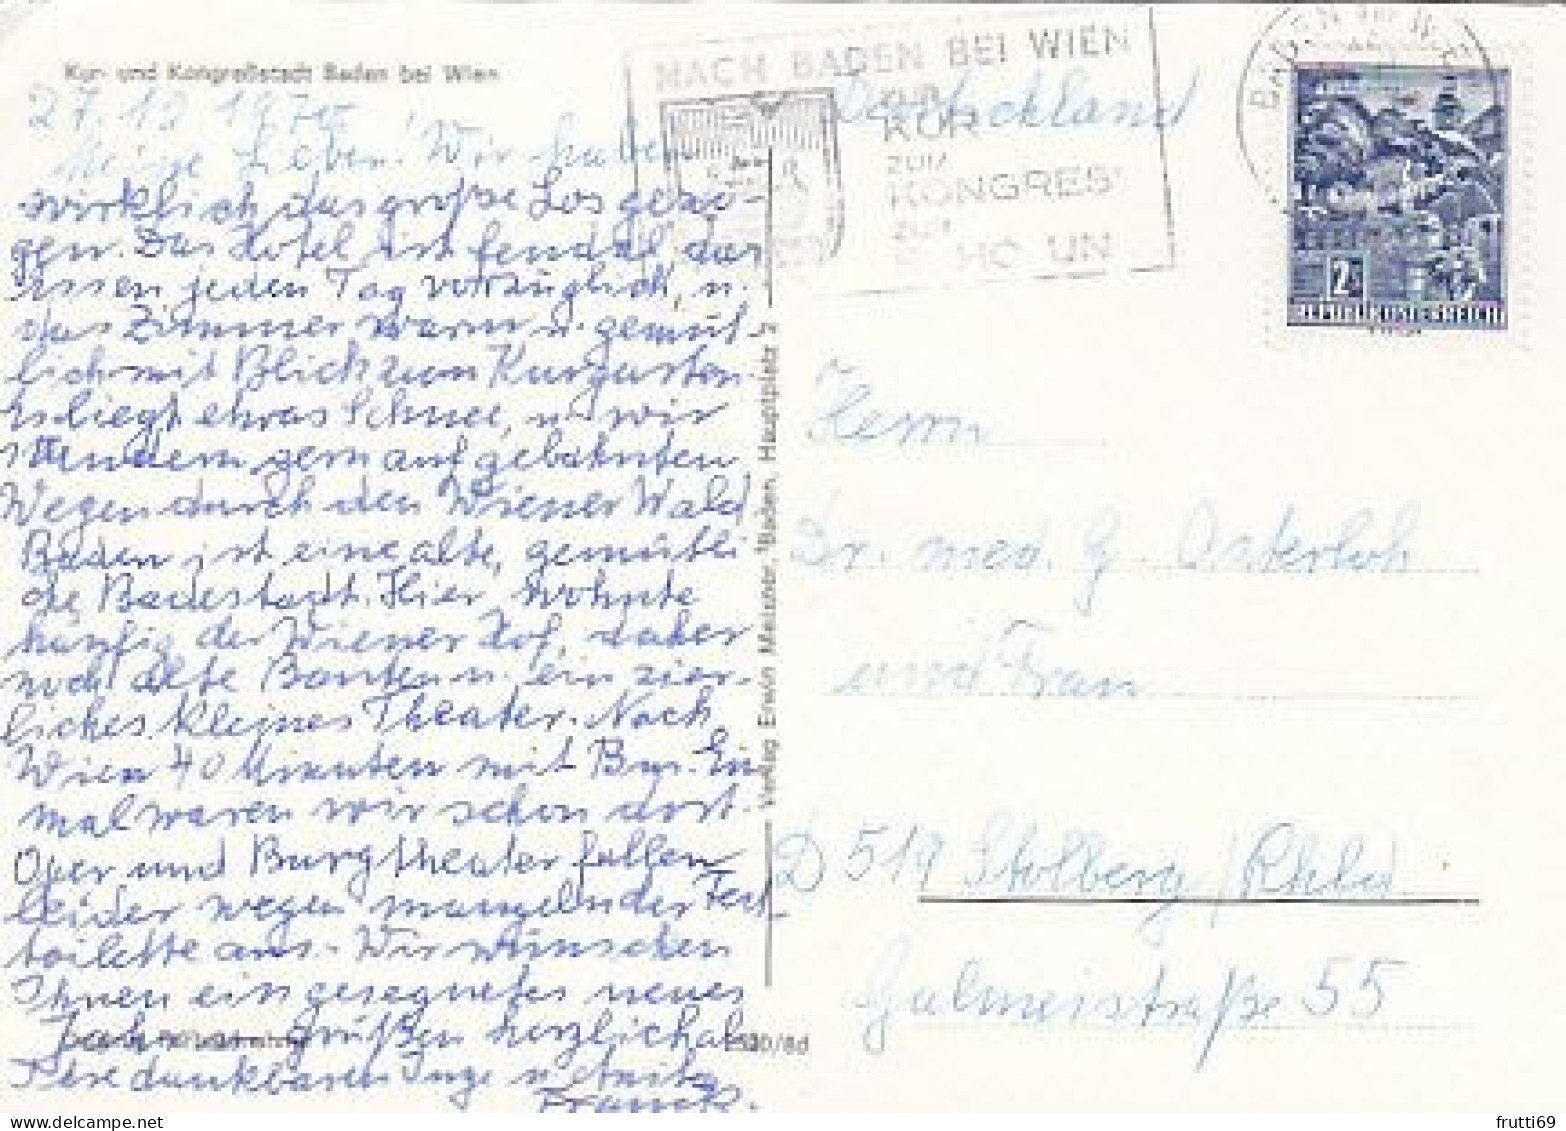 Kur- und Kongreßstadt Baden bei Wien
27.12.1970
Meine Lieben! Wir haben
wirklich das große Los gezo-
gen. Das Hotel ist feudal, das
Essen jeden Tag vorzüglich, u.
das Zimmer warm u. gemüt-
lich mit Blick zum Kurgarten.
Es liegt etwas Schnee, u. wir
wandern gern auf gebahnten
Wegen durch den Wiener Wald
Baden ist eine alte, gemütli
che Badestadt. Hier wohnte
häufig der Wiener Hof, daher
noch alte Bauten u. ein zier-
liches kleines Theater. Nach
Wien 40 Minuten mit Bus. Ein
mal waren wir schon dort.
Oper und Burgtheater fallen
leider wegen mangelnder Fest
toilette aus. - Wir wünschen
Ihnen ein gesegnetes neues
Jahr und grüßen herzlich als
Ihre dankbaren Inge u.
Franck.
Verlag Erwin Meixner, Baden, Hauptplatz
530/8d
NACH BADEN BEI WIEN
ZUR
KUR
ZUM
KONGRES
ZUR
Deutschland
BADEN BEI WIEN
2
REPUBLIK ÖSTERREICH
Herrn
Dr. med. G. Osterloh
und Frau
D 519 Stolberg/Rhld.
Galmeistraße 55
frutti69